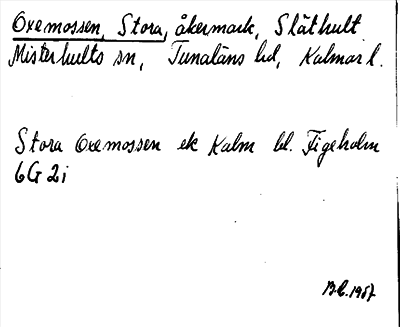 Oxemossen, Stora, åkermark, Släthult
Misterhults sn, Tunaläns hd, Kalmar l.
Stora Oxemossen ek Kalm bl. Figeholm
6G 2i
1967